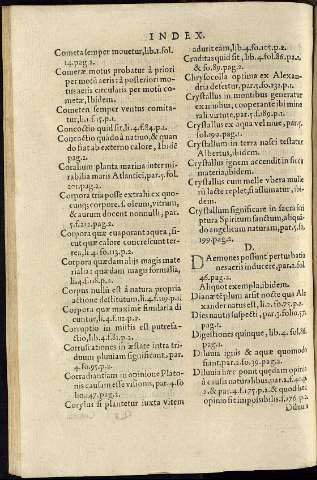 INDEX.
Cometa semper mouetur, lib.1.fol.
14.pag.2.
Cometæ motus probatur à priori
per motũ aeris: à posteriori mo-
tus aeris circularis per motũ co-
metæ, Ibidem.
Cometen semper ventus comita-
tur, li.1.f.15.p.1.
Concoctio quid sit, li.4.f.84.p.1.
Concoctio quando à natiuo, & quan
do fiat ab externo calore, Ibidẽ
pag.2.
Coralium planta marina intermi-
rabilia maris Atlantici, par.5.fol.
201.pag.2.
Corpora tria posse extrahi ex quo-
cunq; corpore, s. oleum, vitrum,
& aurum docent nonnulli, par.
5.f.212.pag.2.
Corpora quæ euaporant aquea, si-
cut quæ calore concrescunt ter-
rea, li.4.fo.113.p.2.
Corpora quædam alijs magis mate
rialia: quædam magis formalia,
li.4.f.118.p.2.
Corpus nullũ est à natura propria
actione destitutum, li.4.f.119.p.1.
Corpora quæ maxime similaria di
cuntur, li.4.f.112.p.1.
Corruptio in mutis est putrefa-
ctio, lib.4.f.81.p.2.
Corruscationes in æstate intra tri-
duum pluuiam significant, par.
4.fo.95.p.2.
Corradiantiam in opinione Plato-
nis causam esse visionis, par.4.fo
lio.147.pag.1.
Corylus si plantetur iuxta vitem
adurit eam, lib.4.fo.105.p.2.
Cruditas quid sit, lib.4.fol.86.pa.1.
& fo.89.pag.2.
Chrysocolla optima ex Alexan-
dria defertur, par.5.fo.132.p.1.
Crystallus in montibus generatur
ex niuibus, cooperante ibi mine
rali virtute, par.5.f.89.p.1.
Crystallus ex aqua vel niue, par.5.
fol.199.pag.1.
Crystallum in terra nasci testatur
Albertus, ibidem.
Crystallus ignem accendit in sicca
materia, ibidem.
Crystallus cum melle vbera mulie
rũ lacte replet, si assumatur, ibi-
dem.
Crystallum significare in sacra scri
ptura Spiritum sanctum, aliquã-
do angelicam naturam, par.5.fo.
199.pag.1.
D.
DAemones possunt perturbatio
nes aeris inducere, par.2.fol.
46.pag.1.
Aliquot exempla, ibidem.
Dianæ tẽplum arsit nocte qua Ale
xander natus est, li.2.fo.75.p.1.
Digestiones quinque, lib.4.fol.86.
pag.1.
Diluuia ignis & aquæ quomodo
fiant, par.2.fo.39.pag.2.
Diluuia hæc ponit quædam opinio
Diluuia